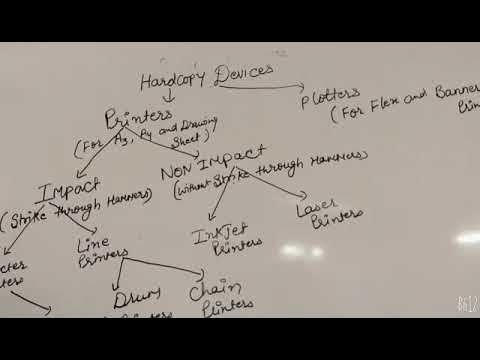 Hardcopy Devices
Printers
(For A3, A4 and Drawing
Sheet)
Plotters
(For Flex and Banner
IMPACT
(Strike through Hammers)
NON IMPACT
(Without Strike through Hammers)
Line
Printers
InkJet
Printers
Laser
Printers
Drum
Chain
Printers